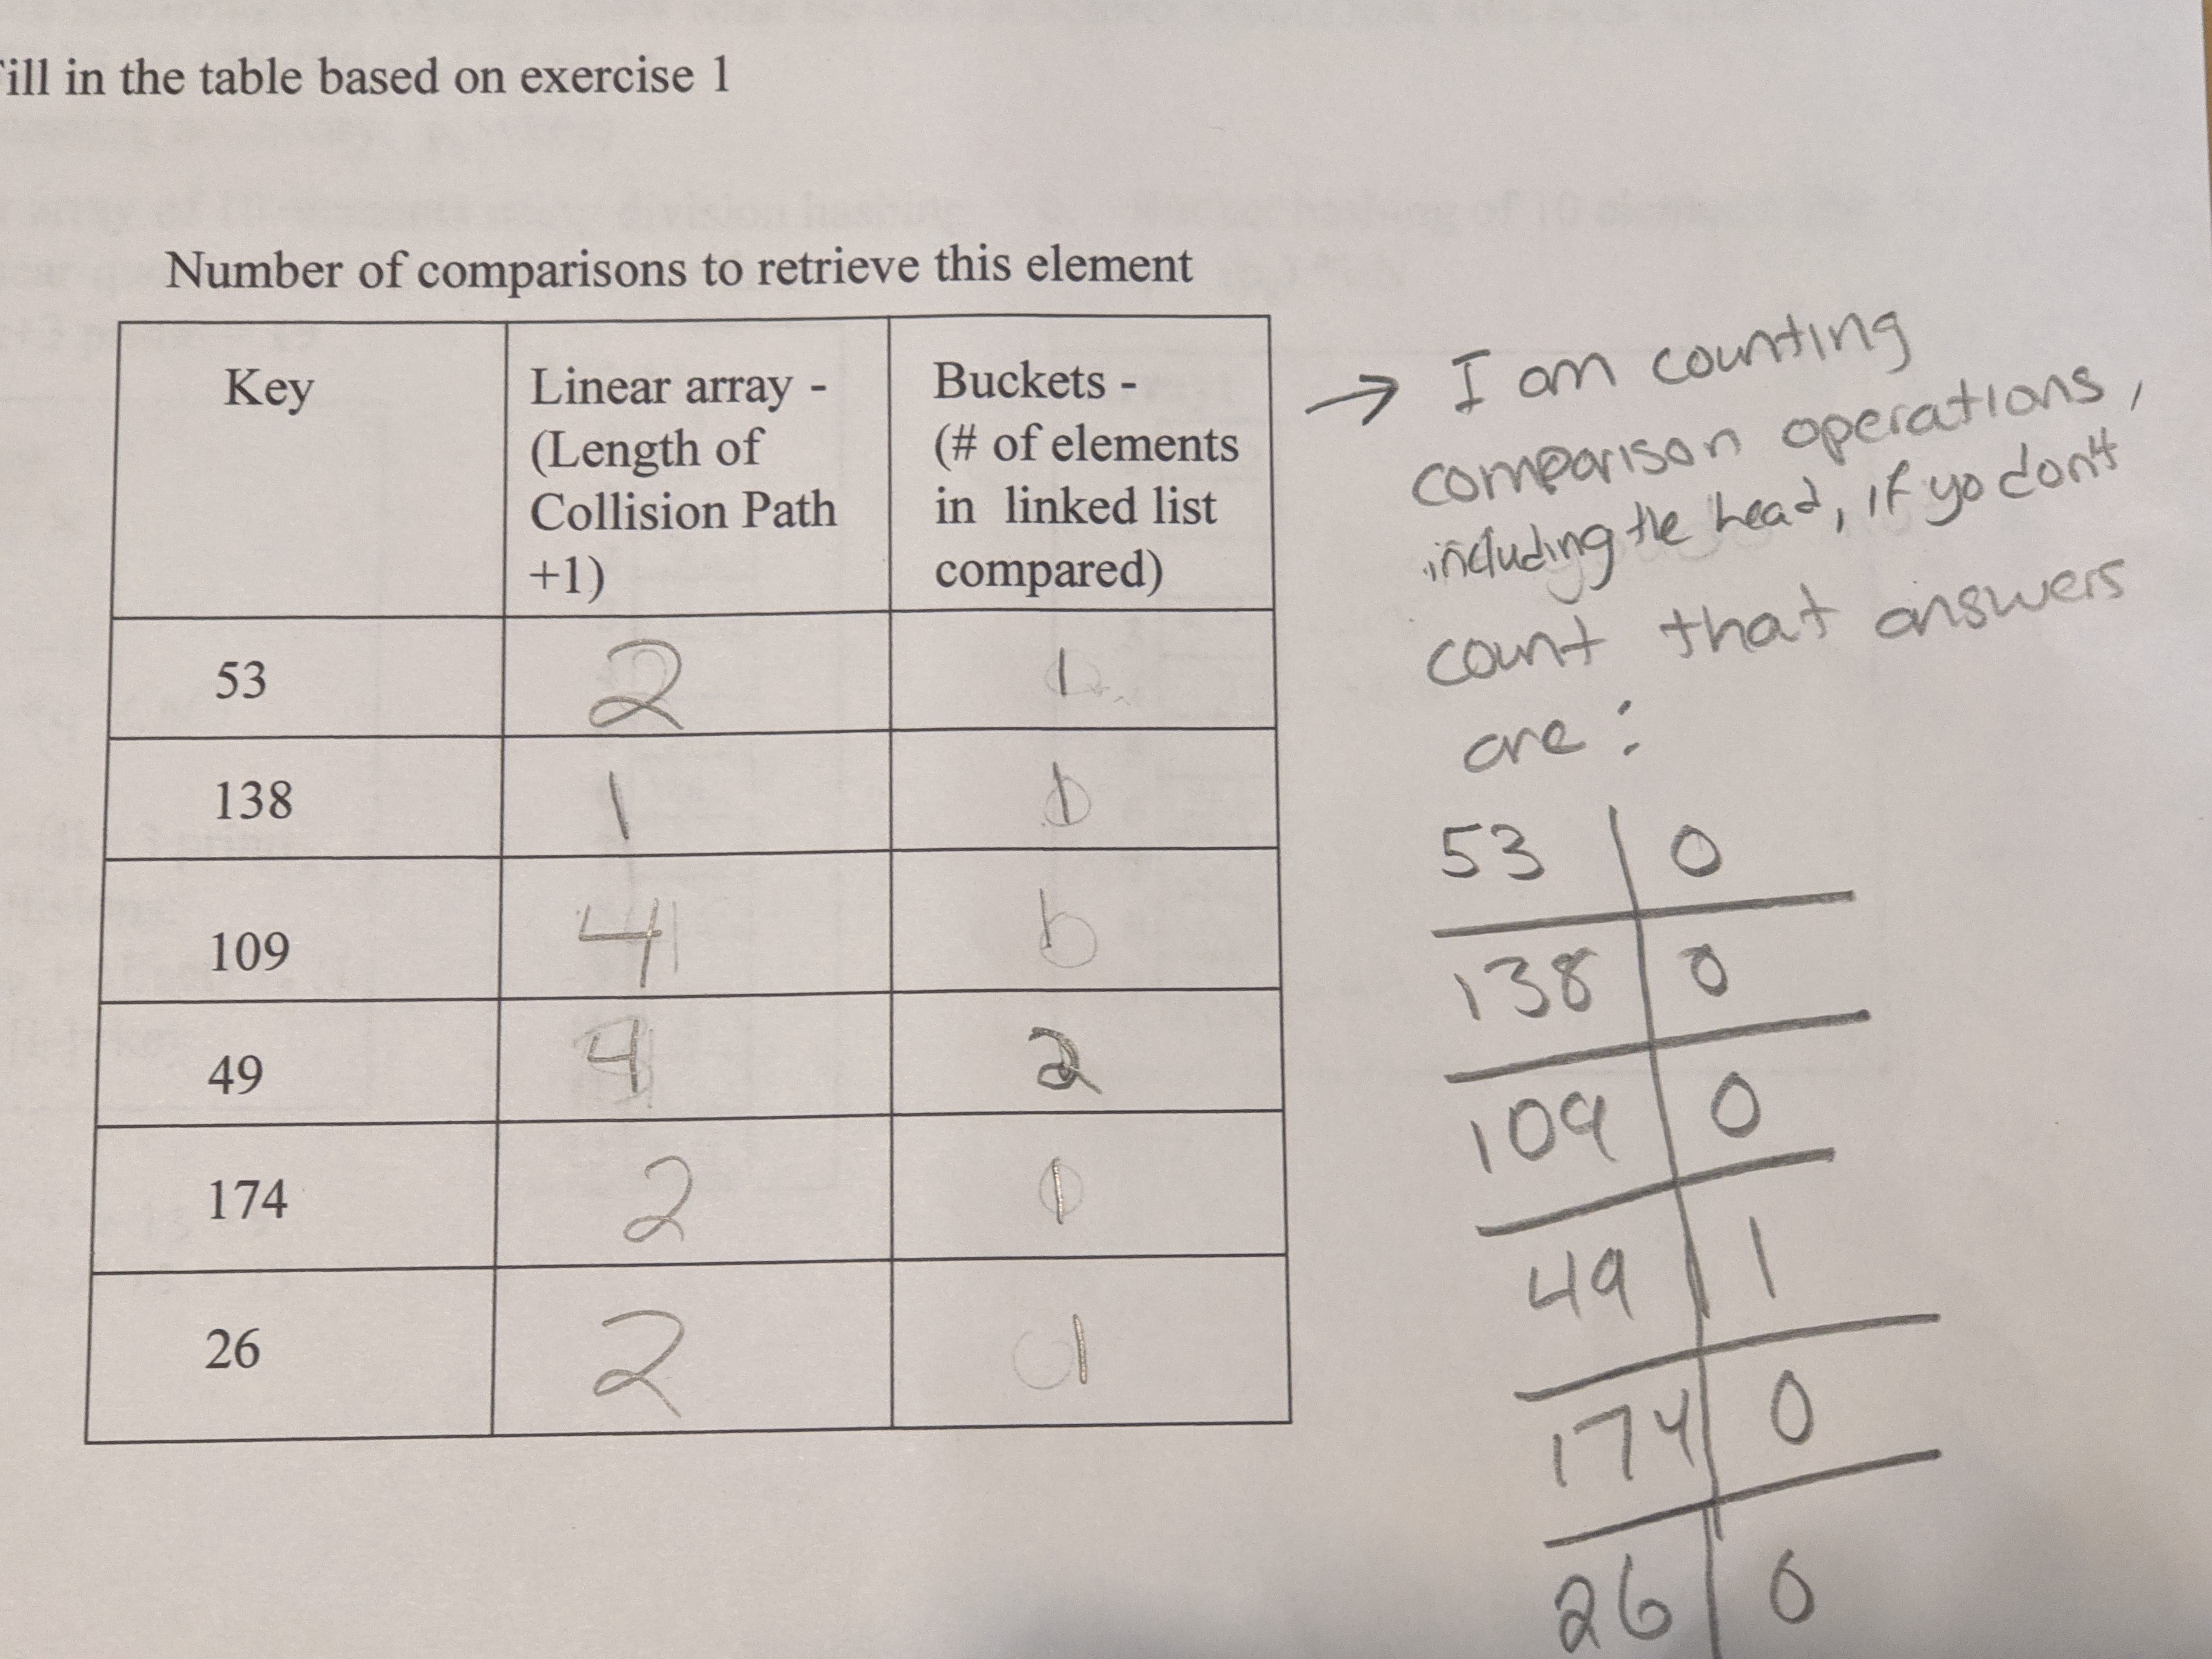 ill in the table based on exercise 1
Number of comparisons to retrieve this element
Key
Linear array -
(Length of
Collision Path
+1)
Buckets -
(# of elements
in linked list
compared)
53 2 1
138 1 1
109 4 1
49 4 2
174 2 1
26 2 1
→ I am counting
comparison operations,
including the head, if yo dont
count that answers
are:
53 0
138 0
109 0
49 1
174 0
26 0